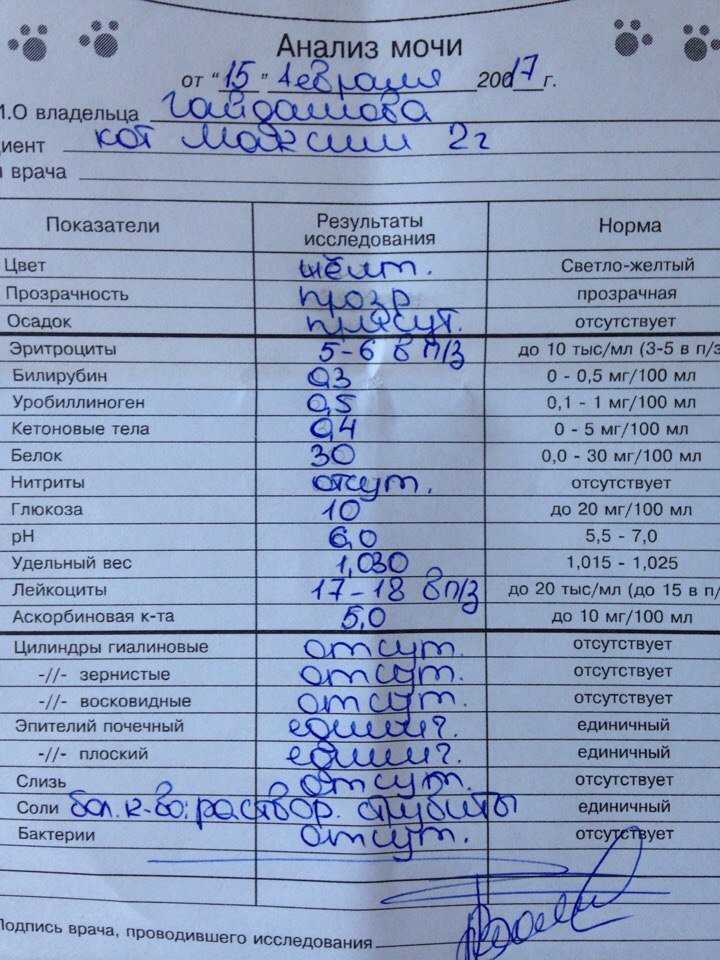 Анализ мочи
от "15" февраля 2007 17 г.
И.О владельца Гайдашова
циент кот Максим 2г
врача
Показатели Результаты исследования Норма
Цвет жёлт. Светло-желтый
Прозрачность прозр прозрачная
Осадок присут. отсутствует
Эритроциты 5-6 в п/з до 10 тыс/мл (3-5 в п/з
Билирубин 0,3 0 - 0,5 мг/100 мл
Уробиллиноген 0,5 0,1 - 1 мг/100 мл
Кетоновые тела 0,4 0 - 5 мг/100 мл
Белок 30 0,0 - 30 мг/100 мл
Нитриты отсут. отсутствует
Глюкоза 10 до 20 мг/100 мл
pH 6,0 5,5 - 7,0
Удельный вес 1,030 1,015 - 1,025
Лейкоциты 17-18 в п/з до 20 тыс/мл (до 15 в п/
Аскорбиновая к-та 5,0 до 10 мг/100 мл
Цилиндры гиалиновые отсут. отсутствует
-//- зернистые отсут. отсутствует
-//- восковидные отсут. отсутствует
Эпителий почечный единич. единичный
-//- плоский единич. единичный
Слизь отсут. отсутствует
Соли бол. к-во: раствор. струвиты единичный
Бактерии отсут. отсутствует
Подпись врача, проводившего исследования